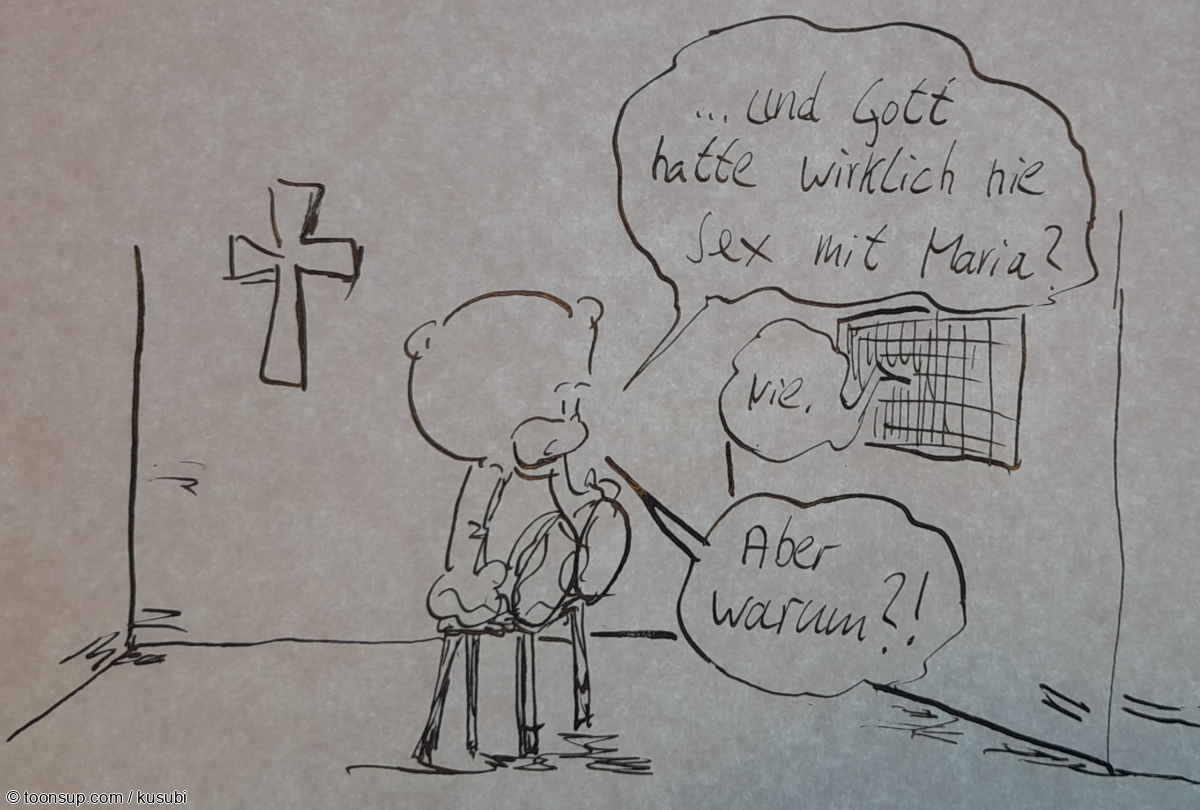 ...und Gott
hatte wirklich nie
Sex mit Maria?
Nie.
Aber
warum?!
© toonsup.com / kusubi